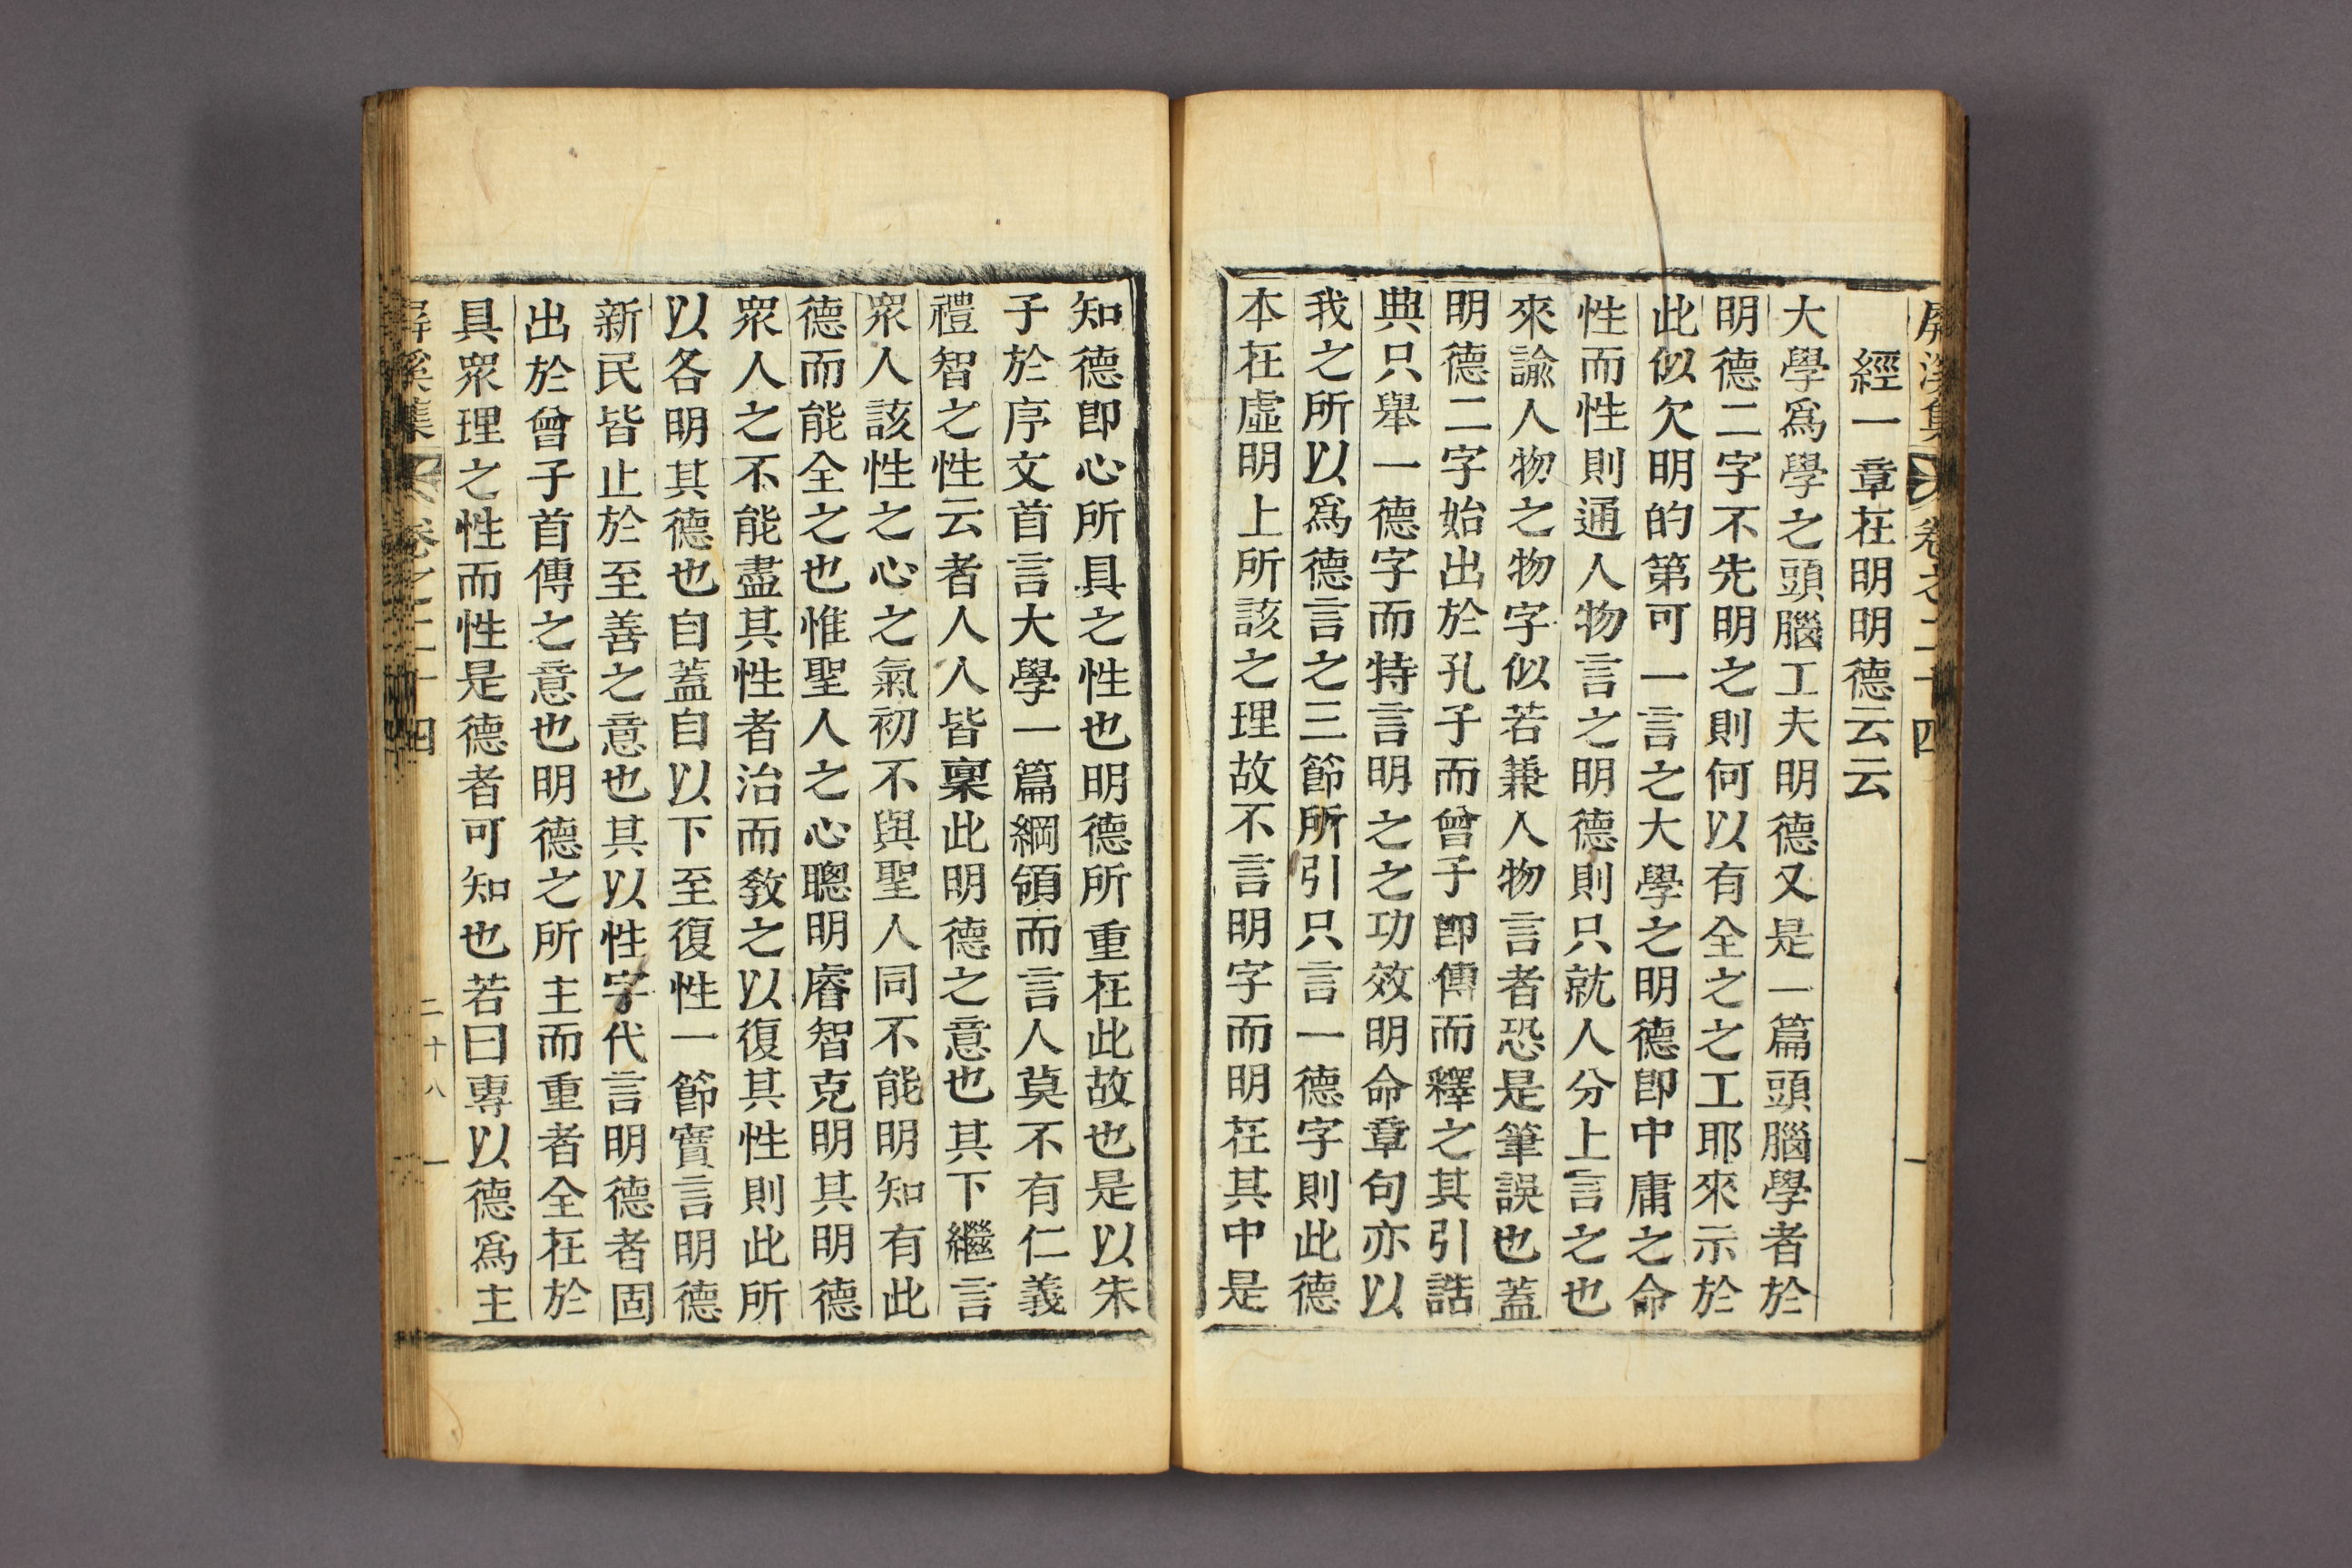 屏溪集 卷之二十四
經一章在明明德云云
大學爲學之頭腦工夫明德又是一篇頭腦學者於
明德二字不先明之則何以有全之之工耶來示於
此似欠明的第可一言之大學之明德卽中庸之命
性而性則通人物言之明德則只就人分上言之也
來諭人物之物字似若兼人物言者恐是筆誤也蓋
明德二字始出於孔子而曾子卽傳而釋之其引誥
典只舉一德字而特言明之之功效明命章句亦以
我之所以爲德言之三節所引只言一德字則此德
本在虛明上所該之理故不言明字而明在其中是
知德卽心所具之性也明德所重在此故也是以朱
子於序文首言大學一篇綱領而言人莫不有仁義
禮智之性云者人人皆稟此明德之意也其下繼言
衆人該性之心之氣初不與聖人同不能明知有此
德而能全之也惟聖人之心聰明睿智克明其明德
衆人之不能盡其性者治而教之以復其性則此所
以各明其德也自蓋自以下至復性一節實言明德
新民皆止於至善之意也其以性字代言明德者固
出於曾子首傳之意也明德之所主而重者全在於
具衆理之性而性是德者可知也若曰專以德爲主
屏溪集 卷之二十四 二十八